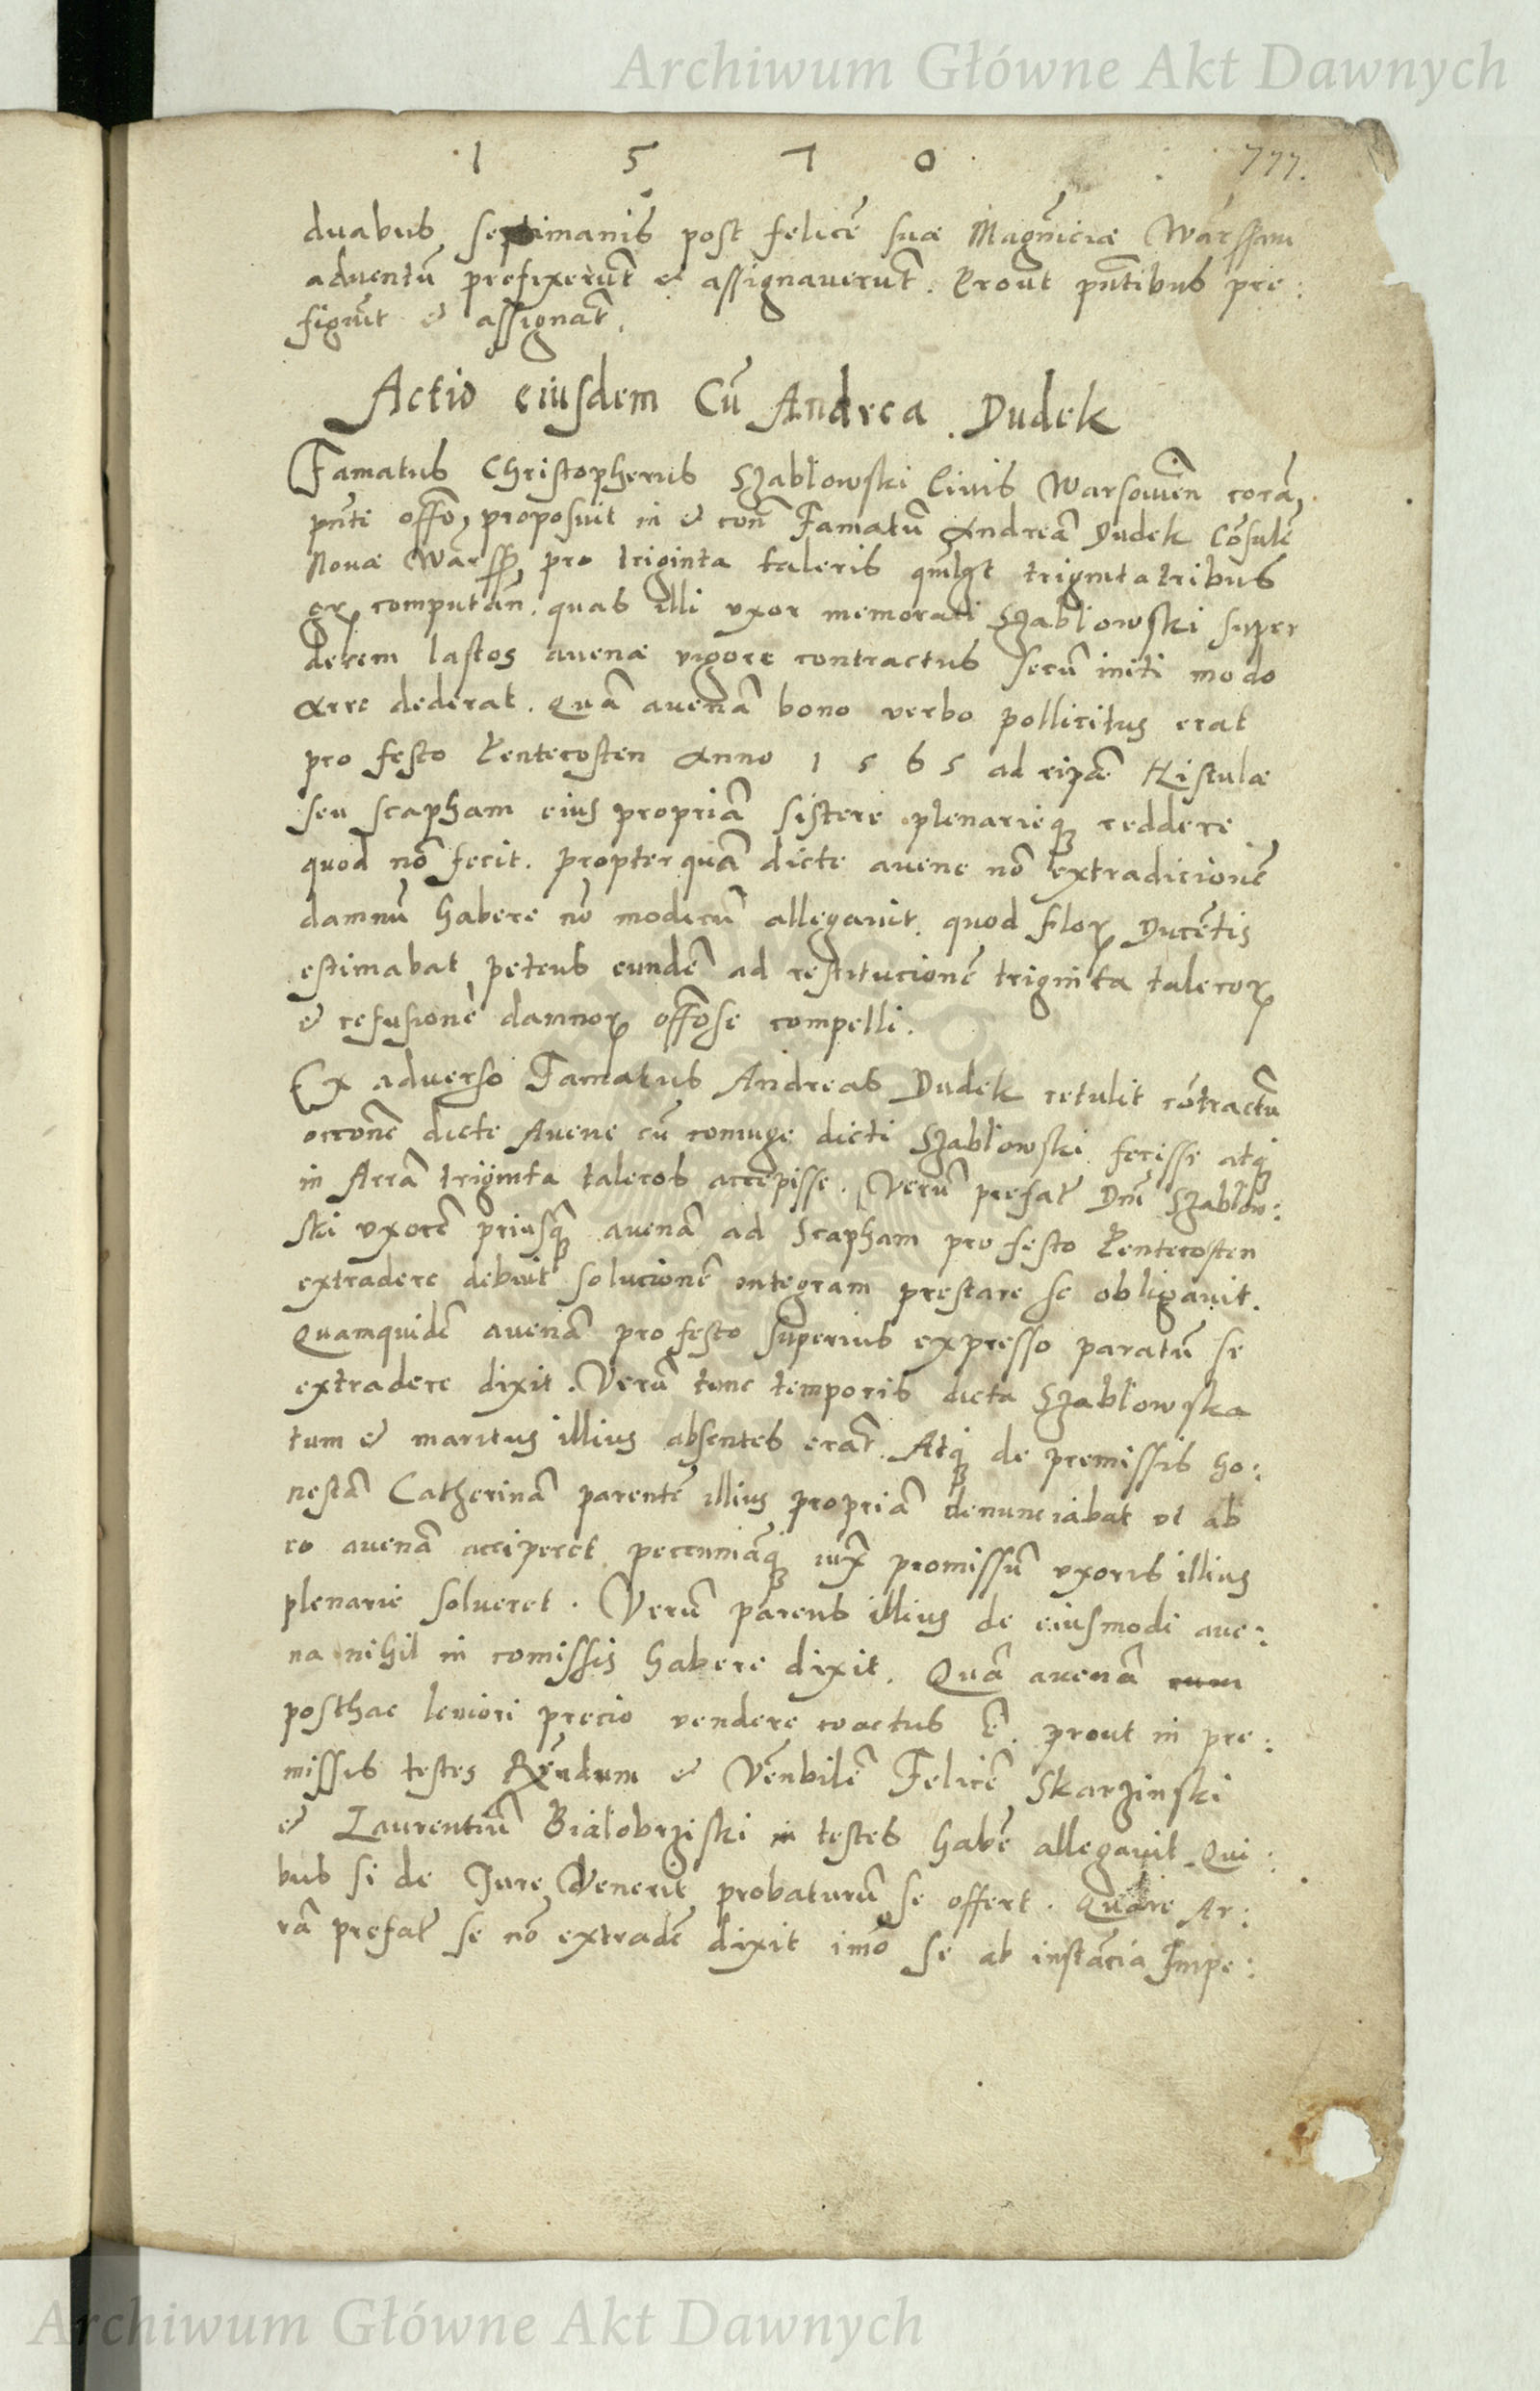 Archiwum Główne Akt Dawnych
1 5 7 0 777.
duabus septimanis post felicē suæ Magn̄iciæ Warssam
adventū prefixerūt et assignaverūt. Prout pn̄tibus pre:
figūt et assignāt.
Actio eiusdem Cū Andrea Dudek
Famatus Christopherus Szabłowski Civis Warsowien̄ corā
pn̄ti offo, proposuit in et con̄ Famatū Andreā Dudek Cōsulē
Novæ Warss, pro triginta taleris trigintatribus
gr computan̄. quas illi uxor memorati Szabłowski super
decem lastos avenæ vigore contractus secū initi modo
arre dederat. Quā avenā bono verbo pollicitus erat
pro festo Pentecosten Anno 1 5 6 5 ad ripā Histulæ
seu scapham eius propriā sistere plenarieq reddere
quod nō fecit. propter quā dicte avene nō extradicionē
damnū habere nō modicū allegavit. quod flor Ducētis
estimabat petens eundē ad restitucionē triginta taleror
et refusionē damnor offose compelli.
Ex adverso Famatus Andreas Dudek retulit cōtractū
occonē dicte Avene cū coniuge dicti Szabłowski fecisse atq
in Arrā triginta taleros accepisse. Verū prefat Dni Szabłow:
ski uxorē priusq avenā ad Scapham pro festo Pentecosten
extradere debuit solucionē integram prestare se obligavit.
Quamquidē avenā pro festo superius expresso paratū se
extradere dixit. Verū tunc temporis dicta Szabłowska
tum et maritus illius absentes erāt. Atq de premissis ho:
nestā Catherinā parentē illius propriā denunciabat ut ab
eo avenā acciperet pecuniāq iux promissū uxoris illius
plenarie solveret. Verū parens illius de eiusmodi ave:
na nihil in comissis habere dixit. Quā avenā cum
posthac leviori precio vendere coactus ē. prout in pre:
missis testes Rēndum et Vēnbilē Felicē Skarzinski
et Laurentiū Białobrziski in testes habē allegavit Qui:
bus si de Jure Venerit probaturū se offert. Quare Ar:
rā prefat se nō extradē dixit imō se ab instācia Impe:
Archiwum Główne Akt Dawnych